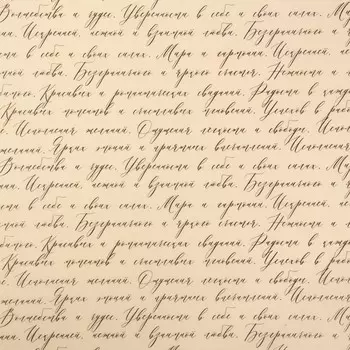 Волшебства и чудес. Уверенности в себе и своих силах. Мира
Искренней, нежной и взаимной любви. Безграничного и
чудес. Уверенности в себе и своих силах. Мира и гармонии. Искренней, нежной
любви. Безграничного и яркого счастья. Нежности и
Красивых и романтических свиданий. Радости в каждом
Красивых поступков и счастливых мгновений. Успехов в работе
Исполнения желаний. Ощущения легкости и свободы. Исполнения
желаний. Ярких эмоций и приятных впечатлений. Исполнения
Волшебства и чудес. Уверенности в себе и своих силах. Мира
Искренней, нежной и взаимной любви. Безграничного и
в себе и своих силах. Мира и гармонии. Искренней
взаимной любви. Безграничного и яркого счастья. Нежности и
Красивых и романтических свиданий. Радости
Красивых поступков и счастливых мгновений. Успехов в
Исполнения желаний. Ощущения легкости и свободы.
желаний. Ярких эмоций и приятных впечатлений. Исполнения
Волшебства и чудес. Уверенности в себе и своих силах.
Искренней, нежной и взаимной любви. Безграничного